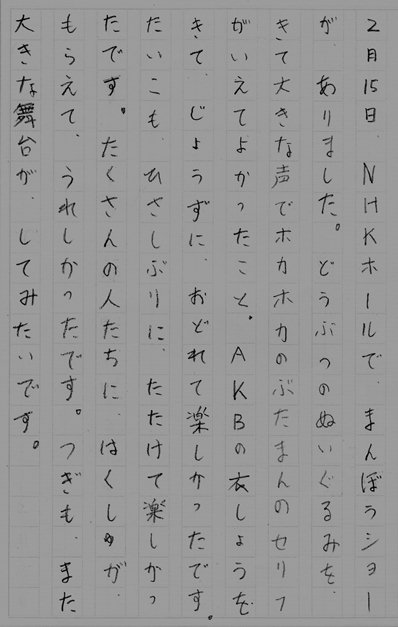 2月15日、NHKホールで、まんぼうショー
が、ありました。どうぶつのぬいぐるみを、
きて大きな声でホカホカのぶたまんのセリフ
がいえてよかったこと。AKBの衣しょうを
きて、じょうずに、おどれて楽しかったです。
たいこも、ひさしぶりに、たたけて楽しかっ
たです。たくさんの人たちに、はくしゅが、
もらえて、うれしかったです。つぎも、また
大きな舞台が、してみたいです。